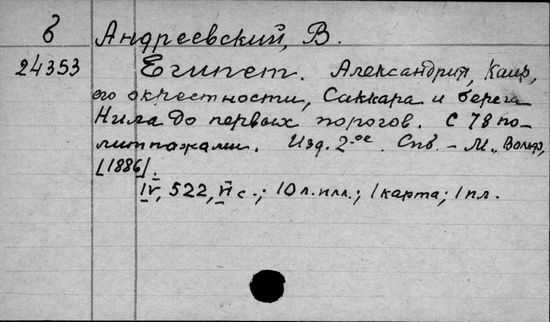 б Андреевский, В.
24353 Египет. Александрия, Каир,
его окрестности, Саккара и берега
Нила до первых порогов. С 78 по-
литипажами. Изд. 2-ое. Спб. - М., Вольф,
[1886].
IV, 522, VI с.; 10 л. илл.; 1 карта; 1 пл.